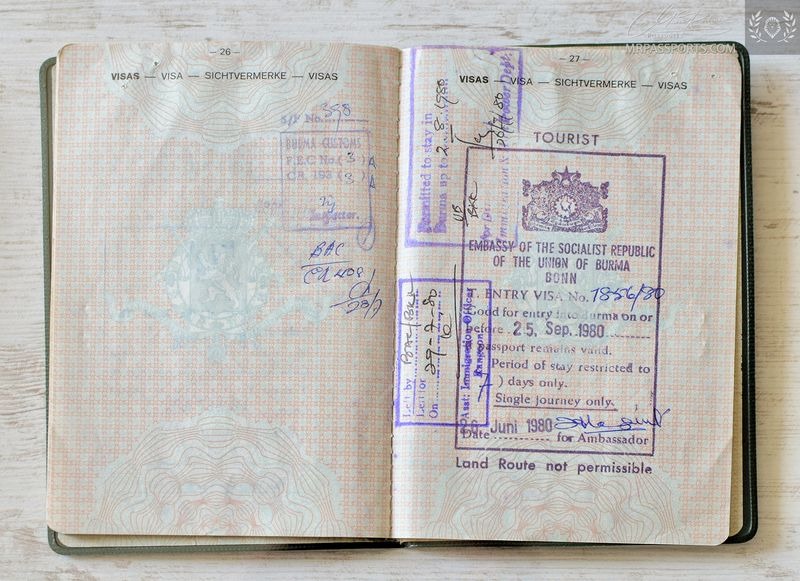 MRPASSPORTS.COM
– 26 –
VISAS — VISA — SICHTVERMERKE — VISAS
S/F No. 398
BURMA CUSTOMS
F.E.C No. ( 3 ) A
C.R. 193 ( 3 ) A
Inspector.
BAC
– 27 –
VISAS — VISA — SICHTVERMERKE — VISAS
Permitted to stay in
Burma up to 2-8-1980
TOURIST
EMBASSY OF THE SOCIALIST REPUBLIC
OF THE UNION OF BURMA
BONN
ENTRY VISA No. 1856/80
Good for entry into Burma on or
before 25, Sep. 1980
passport remains valid.
Period of stay restricted to
) days only.
Single journey only.
26 Juni 1980
Date for Ambassador
Land Route not permissible
Left by
Left for
On 29-7-80
Asst: Immigration Officer
Rangoon